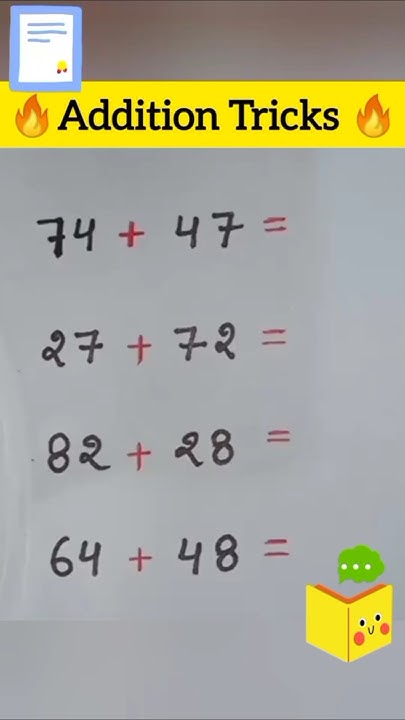 🔥Addition Tricks 🔥
74 + 47 =
27 + 72 =
82 + 28 =
64 + 48 =